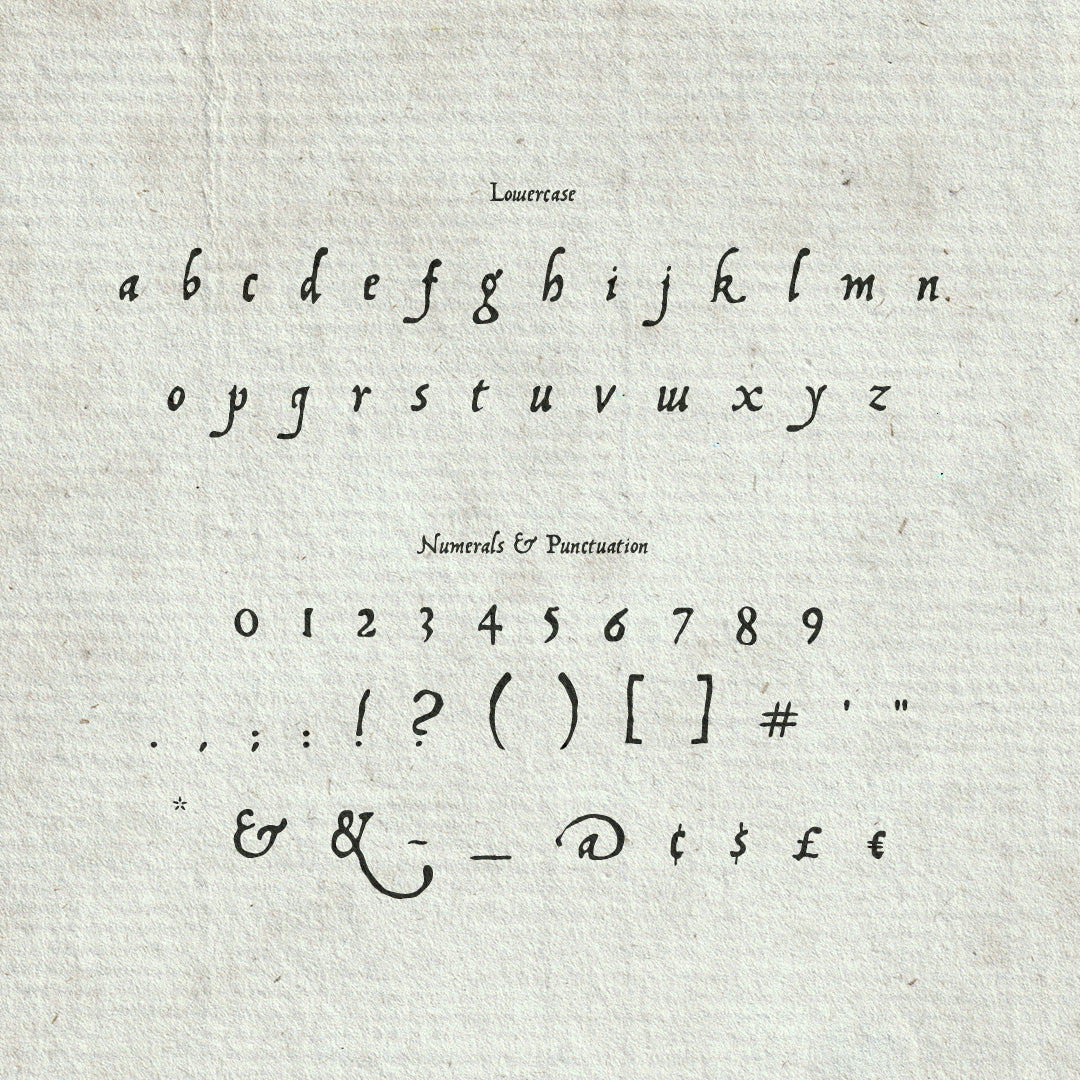 Lowercase
a b c d e f g h i j k l m n
o p q r s t u v w x y z
Numerals & Punctuation
0 1 2 3 4 5 6 7 8 9
. , ; : ! ? ( ) [ ] # ' "
* & & - _ @ ¢ $ £ €